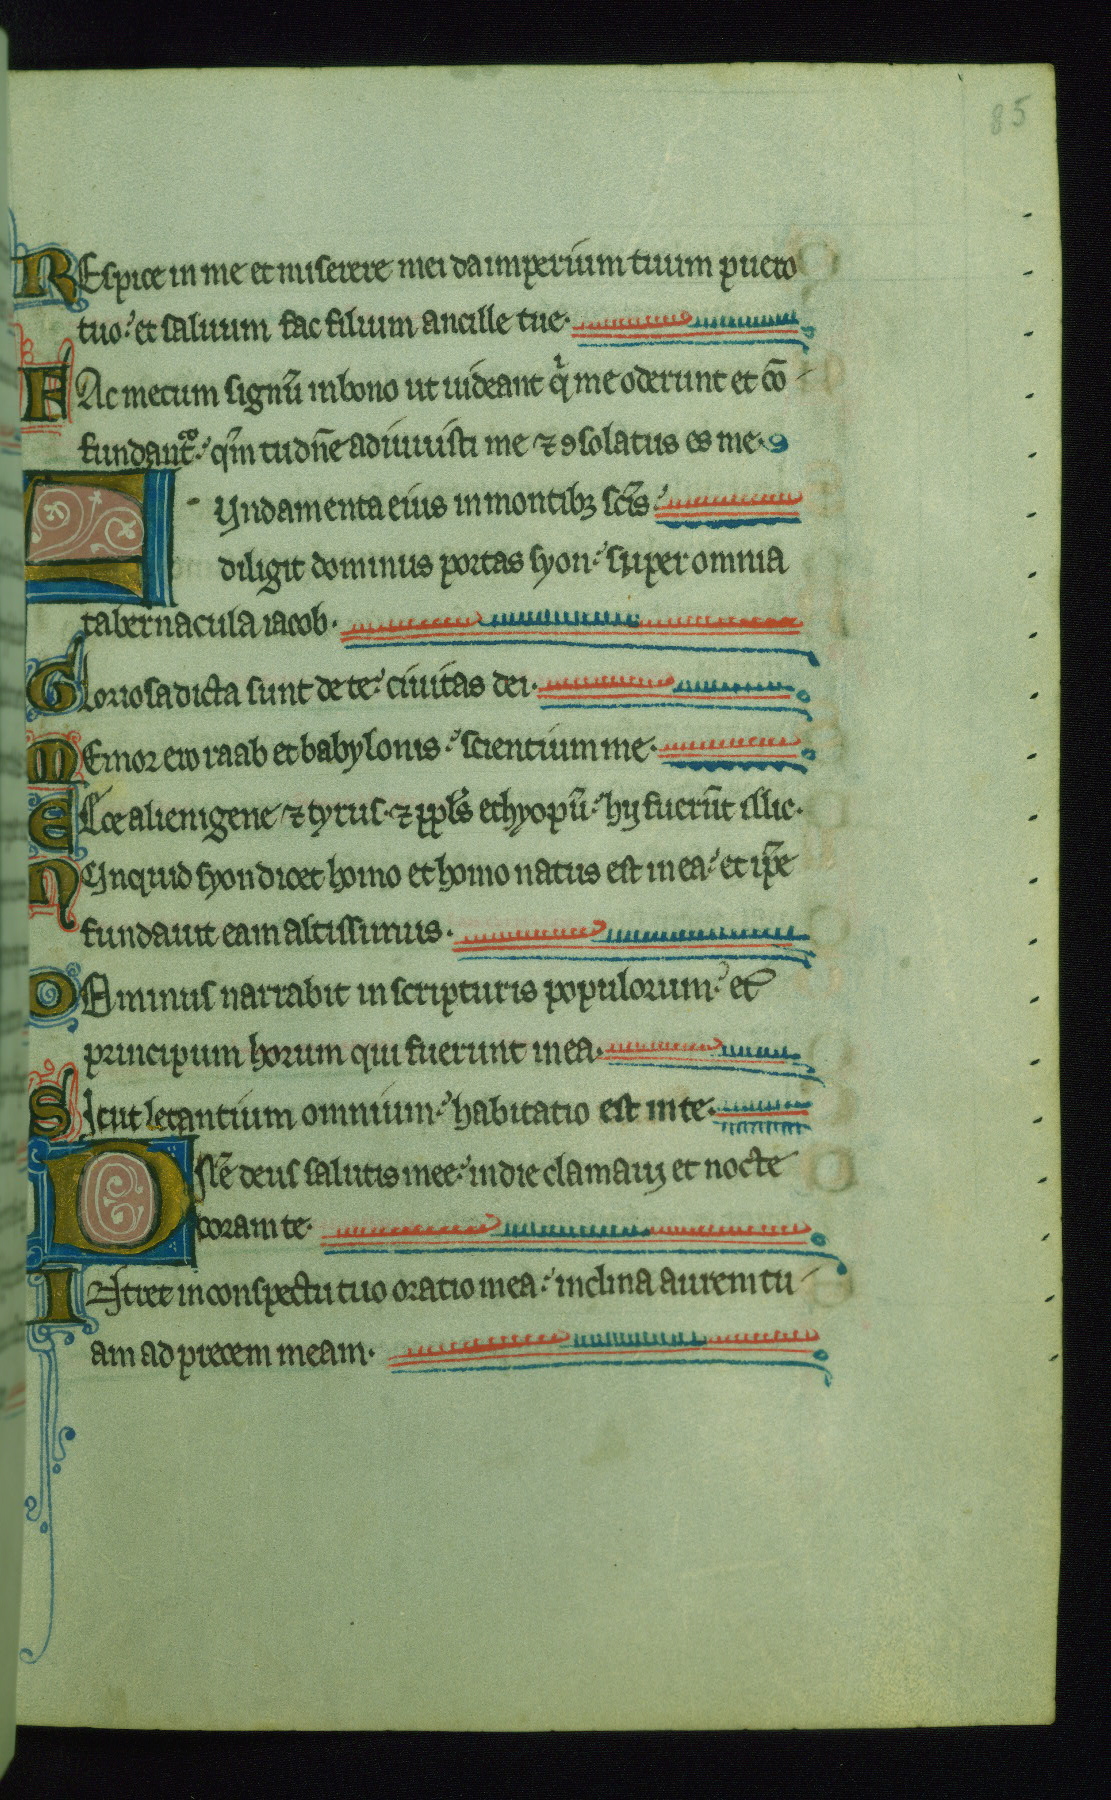 85
REspice in me et miserere mei da imperium tuum puero
tuo: et saluum fac filium ancille tue.
FAc mecum signū in bono ut uideant qͥ me oderunt et cō
fundantᷣ: qm̄ tu dn̄e adiuuisti me ⁊ ꝯsolatus es me.
FVndamenta eius in montibꝫ scīs:
diligit dominus portas syon: super omnia
tabernacula iacob.
GLoriosa dicta sunt de te: ciuitas dei.
MEmor ero raab et babylonis: scientium me.
ECce alienigene ⁊ tyrus. ⁊ ppl̄s ethyopū: hij fuerūt illic.
NVnquid syon dicet homo et homo natus est in ea: et ip̄e
fundauit eam altissimus.
DOminus narrabit in scripturis populorum: et
principum horum qui fuerunt in ea.
SIcut letantium omnium: habitatio est in te.
DNE deus salutis mee: in die clamaui et nocte
coram te.
INtret in conspectu tuo oratio mea: inclina aurem tu
am ad precem meam.